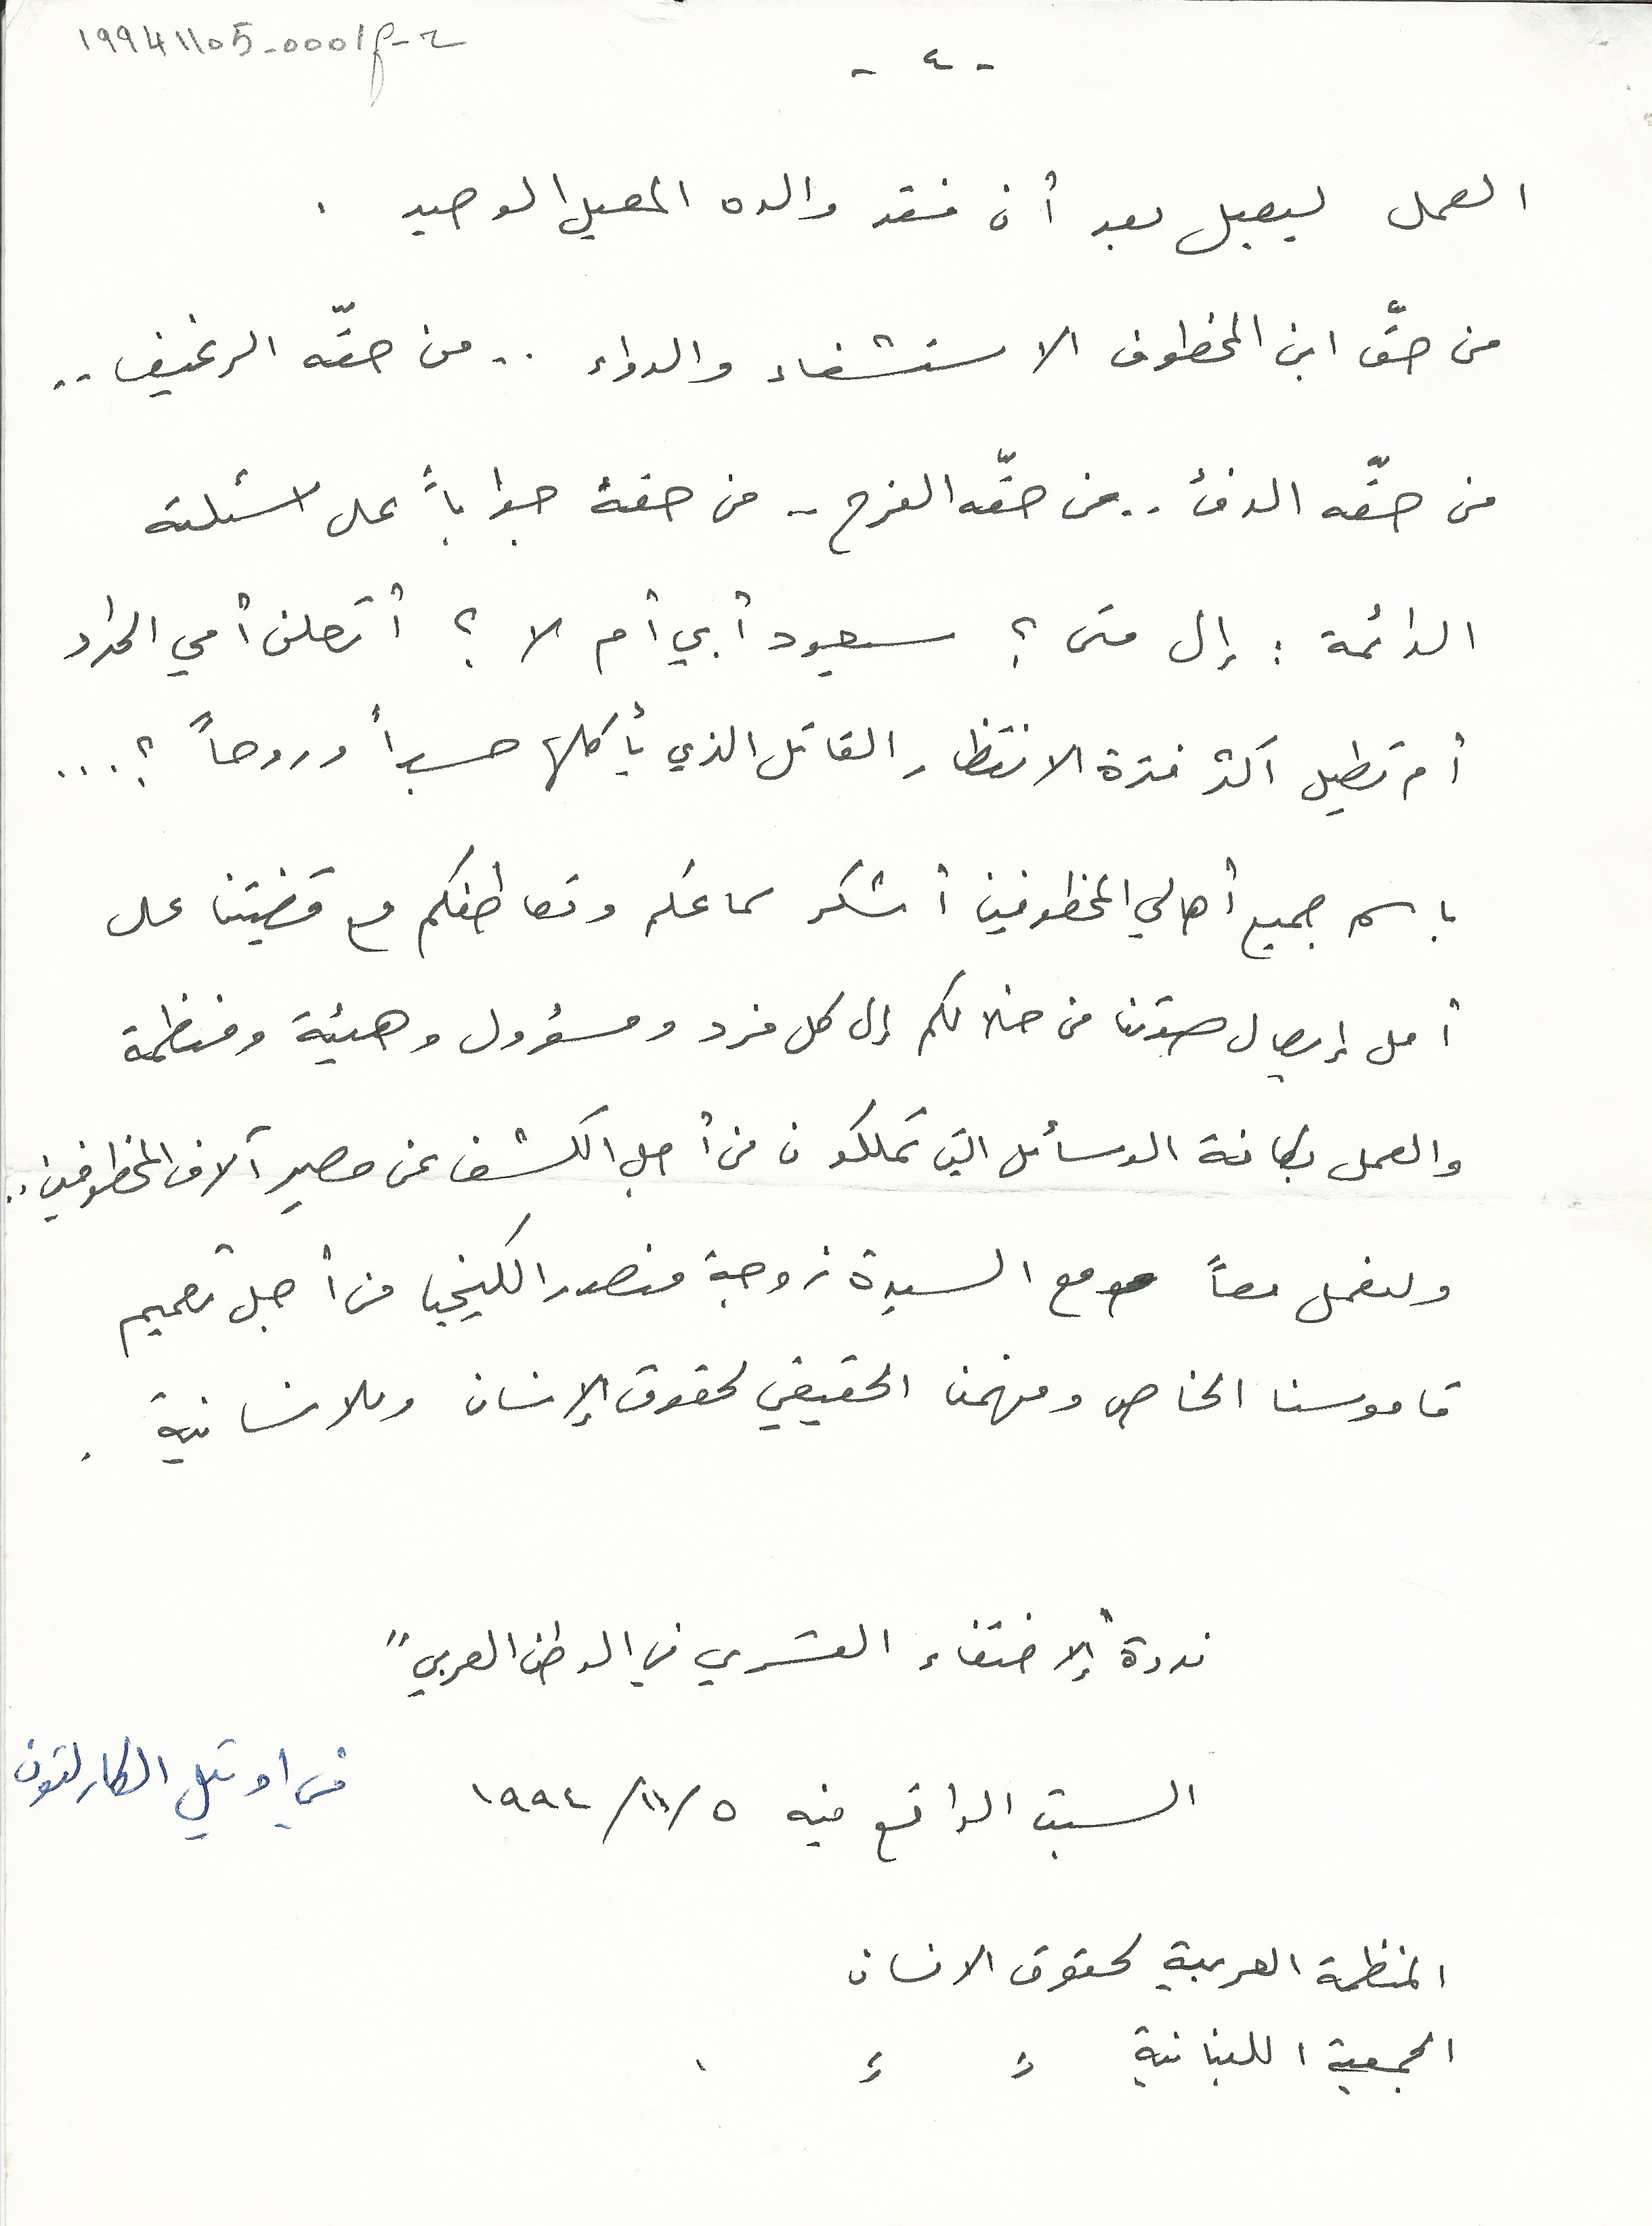 19941105-0001p-2
- ٤ -
العمل ليعيل بعد أن فقد والده المعيل الوحيد .
من حقّ ابن المخطوف الاستشفاء والدواء .. من حقّه الرغيف ..
من حقّه الدفئ .. من حقّه الفرح .. من حقه جواباً على اسئلته
الدائمة : إلى متى ؟ سيعود أبي أم لا ؟ أتعلن أمي الحداد
أم تطيل أكثر فترة الانتظار القاتل الذي يأكلها جسداً وروحاً ؟ ...
باسم جميع أهالي المخطوفين أشكر سماعكم وتعاطفكم مع قضيتنا على
أمل إيصال صوتنا من خلالكم إلى كل فرد ومسؤول وهيئة ومنظمة
والعمل بكافة الوسائل التي تملكون من أجل الكشف عن مصير آلاف المخطوفين ..
ولنعمل معاً مع السيدة زوجة منصور الكيخيا من أجل تعميم
قاموسنا الخاص وفهمنا الحقيقي لحقوق الإنسان وللانسانية .
ندوة "الإختفاء القسري في الوطن العربي"
السبت الواقع فيه ٥/١١/١٩٩٤ في اوتيل الكارلتون
المنظمة العربية لحقوق الانسان
الجمعية اللبنانية ء ء .